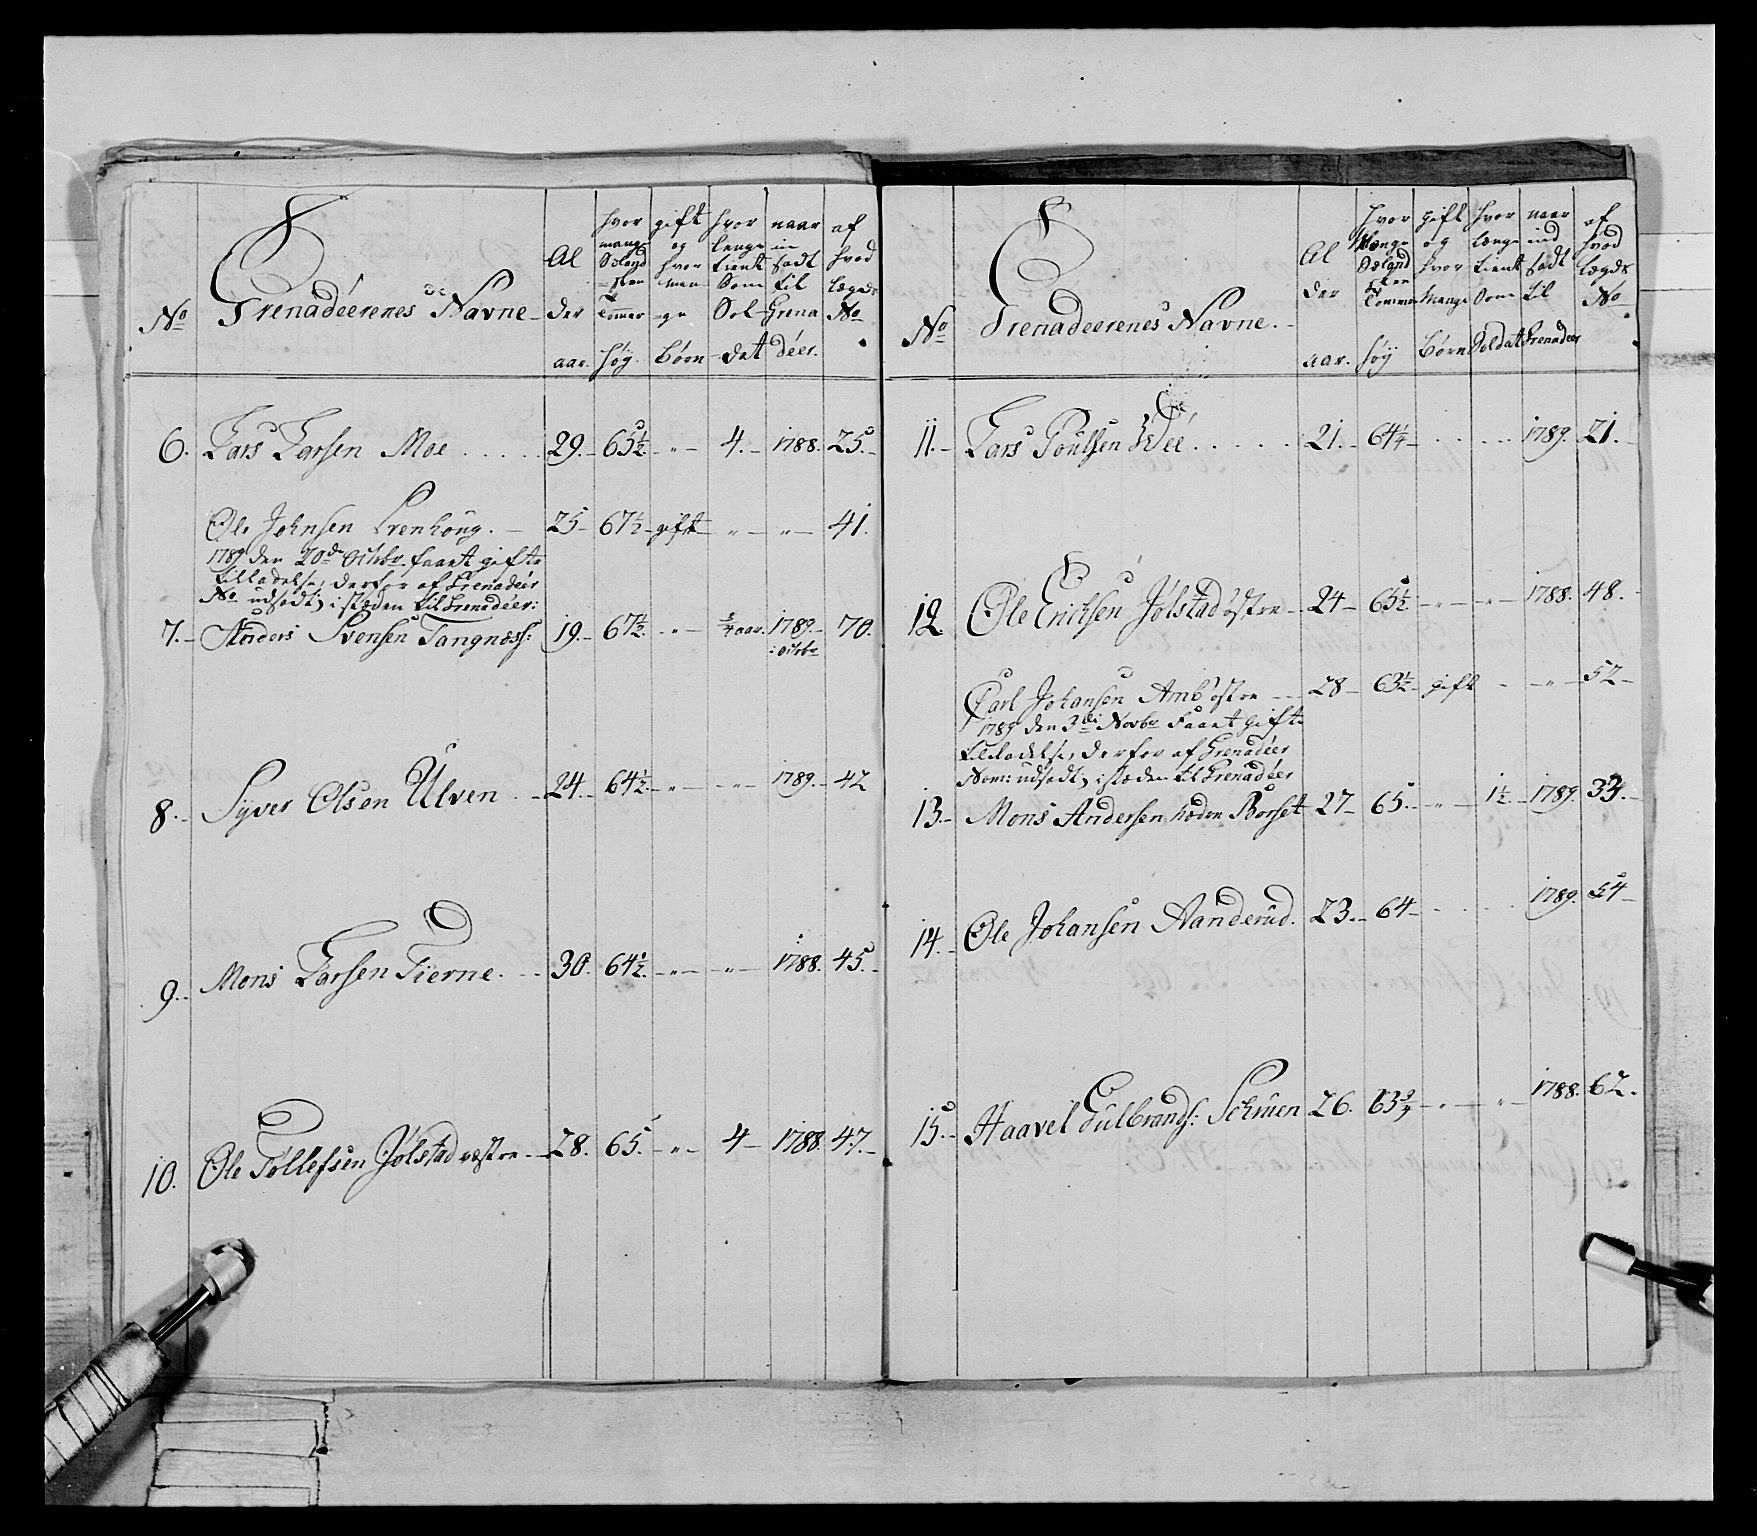 No Grenadeerenes Navne Al der aar. hvor mange Sølandsken Tomer høy. gift og hvor man-ge Børn hvor lenge tient Som Sol-dat naar ind sadt til Grena déer. af hvad lægds No
6. Lars Larsen Moe 29. 65½ „ 4. 1788. 25.
Ole Johnsen Svenhoug. 25 67½ gift „ „ 41.
1789 den 20de Octobr. faaet gifte
tilladelse, derfor af Grenadeer
No udsadt, i stæden til Grenadéer:
7. Anders Svensen Tangnæss: 19. 67½ „ ¾ aar. 1789. 70.
: Octobr
8. Syver Olsen Ulven 24. 64½. „ „ 1789. 42
9. Mons Larsen Tierne. 30. 64½. „ „ 1788. 45.
10. Ole Tollefsen Jølstad væstre 28. 65. „ 4 1788. 47.
No Grenadeerenes Navne. Al der aar. hvor Mange Sølandsken Tommer høy gift og hvor Mange Børn hvor længe tient Som Soldat naar ind sadt til Grenadeer af hvad lægds No
11. Lars Poulsen Wee 21. 64¼ 1789. 21.
12. Ole Erichsen Jølstad østre 24 65½ „ „ 1788. 48.
Carl Johansen Amb østre 28 63½ gift „ 52
1789 den 3die Novbr Faaet gifte
tilladelse, derfor af Grenadéer
Nom: udsadt, i stæden til Grenadéer
13. Mons Andersen nædre Børset 27 65. „ 1½ 1789. 33.
14. Ole Johansen Aanderud. 23. 64 1789. 54
15. Haavel Gulbrands: 26. 63¾ „ „ 1788. 62.